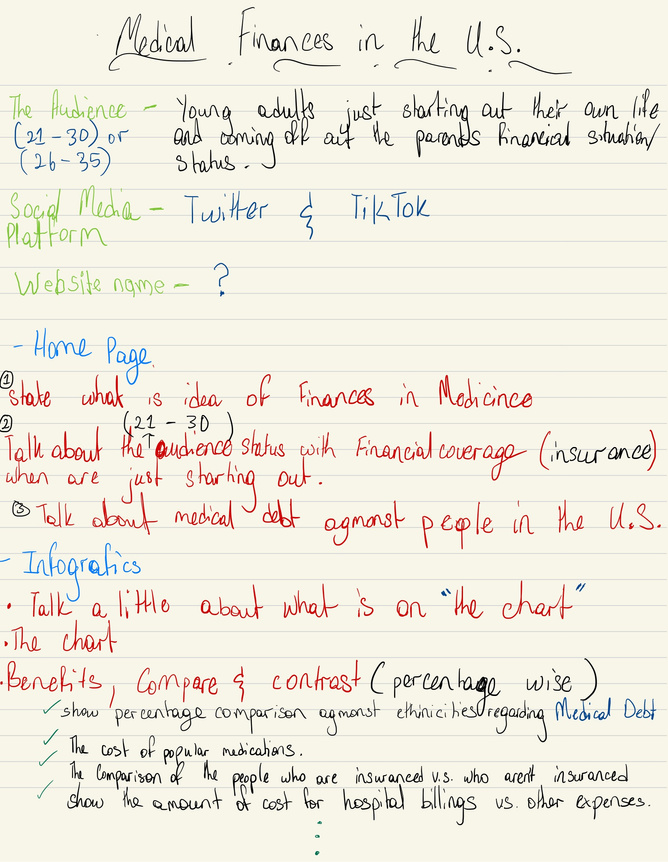 Medical Finances in the U.S.
The Audience - Young adults just starting out their own life
(21-30) or and coming off out the parents financial situation/
(26-35) status.
Social Media - Twitter & TikTok
Platform
Website name - ?
- Home Page
① State what is idea of Finances in Medicince
(21 - 30)
② Talk about the ↑ audience status with Financial coverage (insurance)
when are just starting out.
③ Talk about medical debt agmonst people in the U.S.
- Infografics
• Talk a little about what is on "the chart"
• The chart
• Benefits, Compare & contrast (percentage wise)
✓ show percentage comparison agmonst ethinicities regarding Medical Debt
✓ The cost of popular medications.
✓ The Comparison of the people who are insuranced v.s. who aren't insuranced
✓ show the amount of cost for hospital billings vs. other expenses.